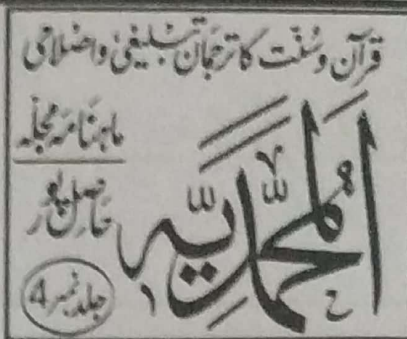 قرآن و سُنّت کا ترجمان تبلیغی و اصلاحی
ماہنامہ مجلّہ
المحمدیہ
حاصل پور
جلد نمبر 4